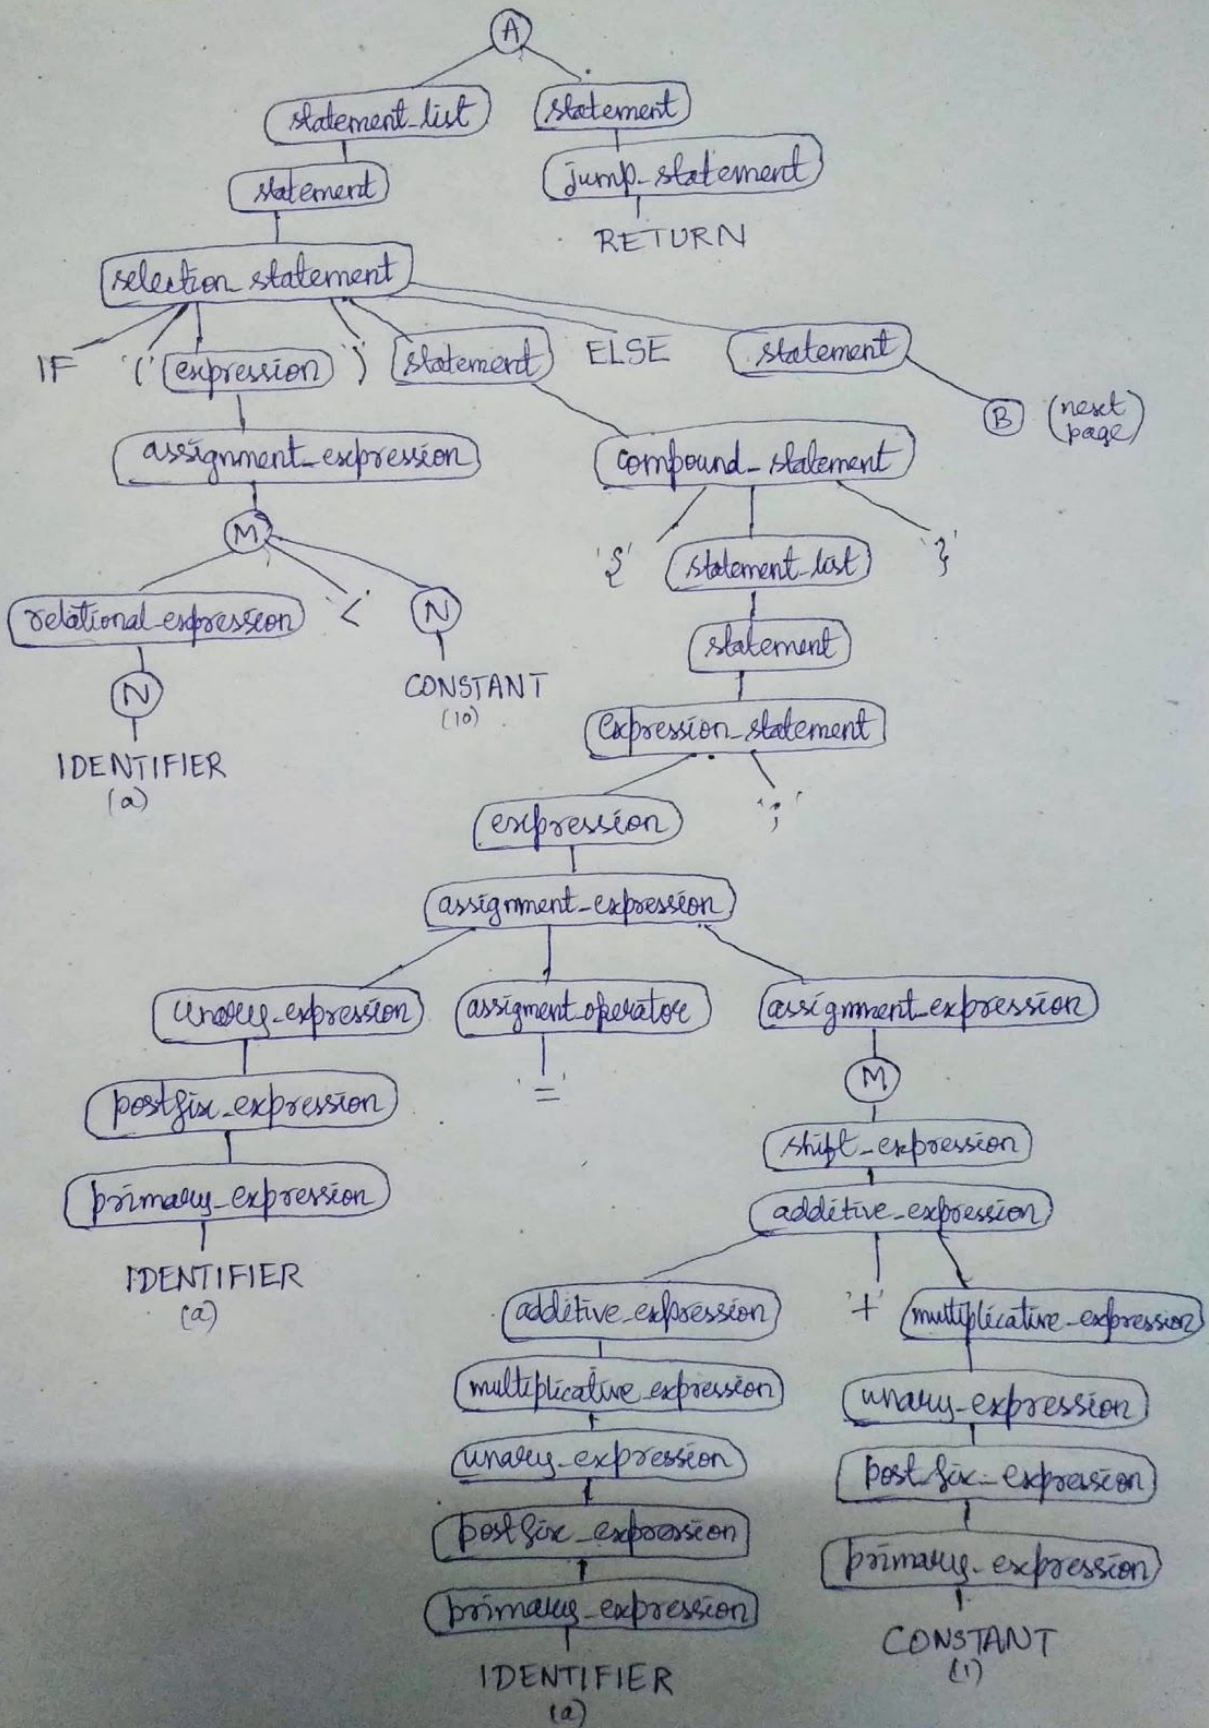 A
statement_list statement
statement jump_statement
RETURN
selection_statement
IF '(' expression ')' statement ELSE statement
B (next page)
assignment_expression compound_statement
M
'{' statement_list '}'
relational_expression '<' N
statement
N CONSTANT
(10)
expression_statement
IDENTIFIER
(a)
expression ';'
assignment_expression
unary_expression assigment_operator assignment_expression
postfix_expression '=' M
shift_expression
primary_expression additive_expression
IDENTIFIER
(a)
additive_expression '+' multiplicative_expression
multiplicative_expression unary_expression
unary_expression postfix_expression
postfix_expression primary_expression
primary_expression CONSTANT
(1)
IDENTIFIER
(a)